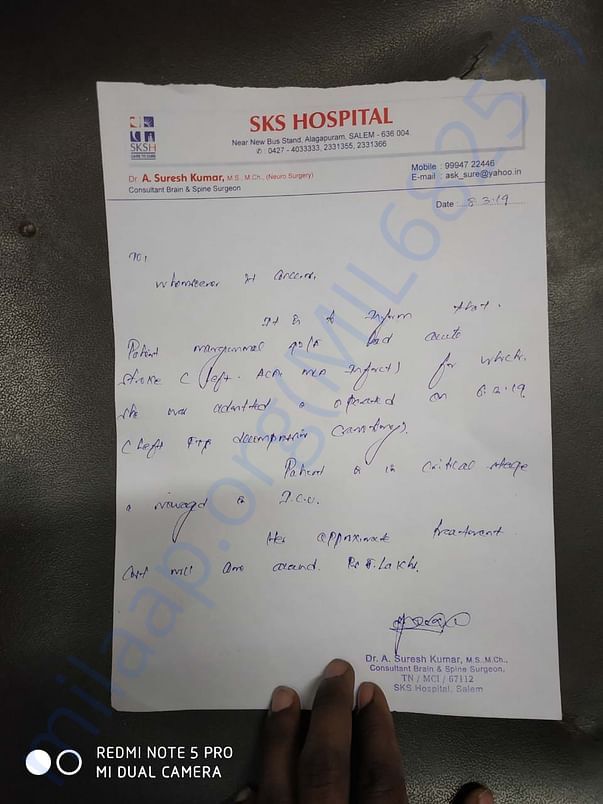 SKS HOSPITAL
Near New Bus Stand, Alagapuram, SALEM - 636 004.
✆ : 0427 - 4033333, 2331355, 2331366
SKSH
CARE TO CURE
Dr. A. Suresh Kumar, M.S., M.Ch., (Neuro Surgery)
Consultant Brain & Spine Surgeon
Mobile : 99947 22446
E-mail : ask_sure@yahoo.in
Date : 8.3.19
To,
Whomsoever it Concerns,
It is to inform that
Patient had acute
stroke C left ACA MCA infarct) for which
she was admitted & operated on 6.3.19
C left FTP decompressive Craniotomy).
Patient is in critical stage
& managed in I.C.U.
Her approximate treatment
cost will around Rs Lakhs.
Dr. A. Suresh Kumar, M.S.,M.Ch.,
Consultant Brain & Spine Surgeon,
TN / MCI / 67112
SKS Hospital, Salem
milaap.org(MIL68257)
REDMI NOTE 5 PRO
MI DUAL CAMERA